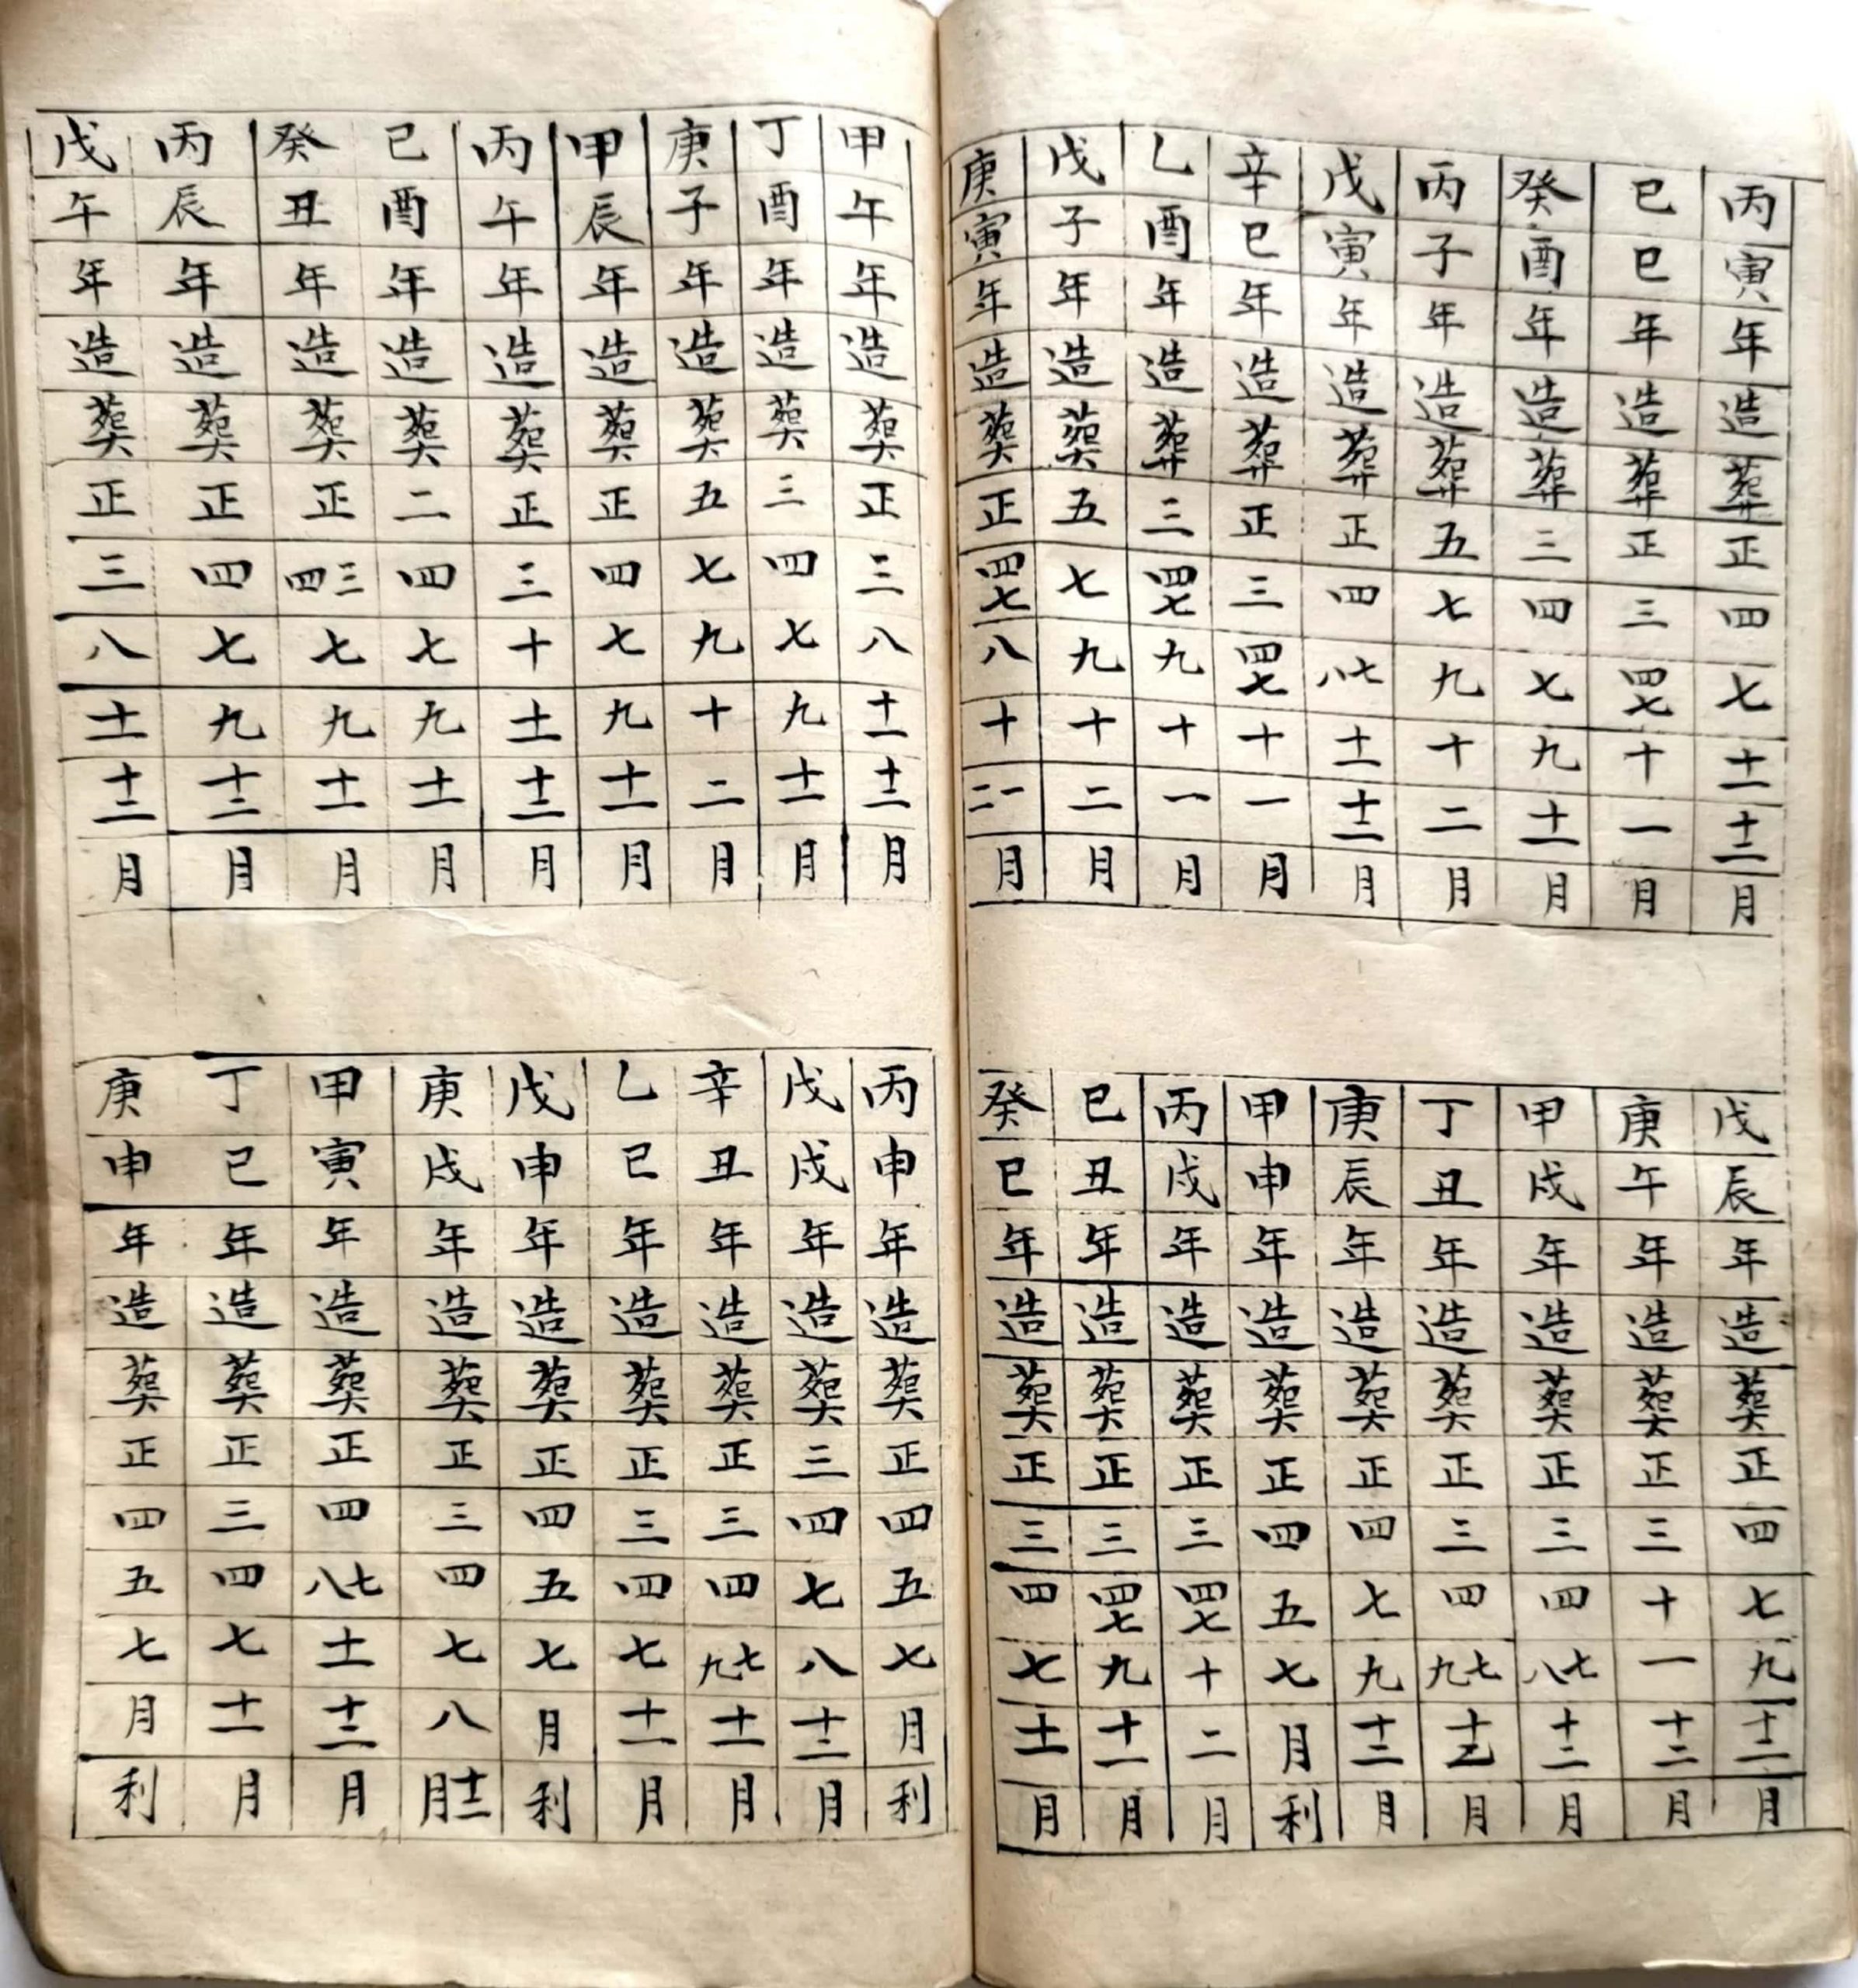 丙寅年造葬正四七十一十二月
己巳年造葬正三四七十一月
癸酉年造葬三四七九十一月
丙子年造葬五七九十二月
戊寅年造葬正四七八十一十二月
辛巳年造葬正三四七十一月
乙酉年造葬三四七九十一月
戊子年造葬五七九十二月
庚寅年造葬正四七八十一二月
戊辰年造葬正四七九十二月
庚午年造葬正三十一十二月
甲戌年造葬正三四七八十二月
丁丑年造葬正三四七九十月
庚辰年造葬正四七九十二月
甲申年造葬正四五七月利
丙戌年造葬正三四七十二月
己丑年造葬正三四七九十一月
癸巳年造葬正三四七十一月
甲午年造葬正三八十一十二月
丁酉年造葬三四七九十一月
庚子年造葬五七九十二月
甲辰年造葬正四七九十一月
丙午年造葬正三十十一十二月
己酉年造葬二四七九十一月
癸丑年造葬正三四七九十一月
丙辰年造葬正四七九十二月
戊午年造葬正三八十一十二月
丙申年造葬正四五七月利
戊戌年造葬三四七八十二月
辛丑年造葬正三四七九十一月
乙巳年造葬正三四七十一月
戊申年造葬正四五七月利
庚戌年造葬正三四七八十二月
甲寅年造葬正四七八十一十二月
丁巳年造葬正三四七十一月
庚申年造葬正四五七月利